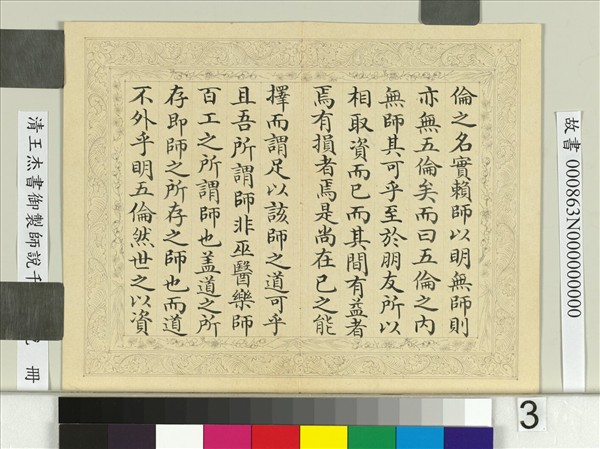 倫之名實賴師以明無師則
亦無五倫矣而曰五倫之內
無師其可乎至於朋友所以
相取資而已而其間有益者
焉有損者焉是尚在已之能
擇而謂足以該師之道可乎
且吾所謂師非巫醫樂師
百工之所謂師也盖道之所
存即師之所存之師也而道
不外乎明五倫然世之以資
故書 000863N000000000
清王杰書御製師說
冊
3